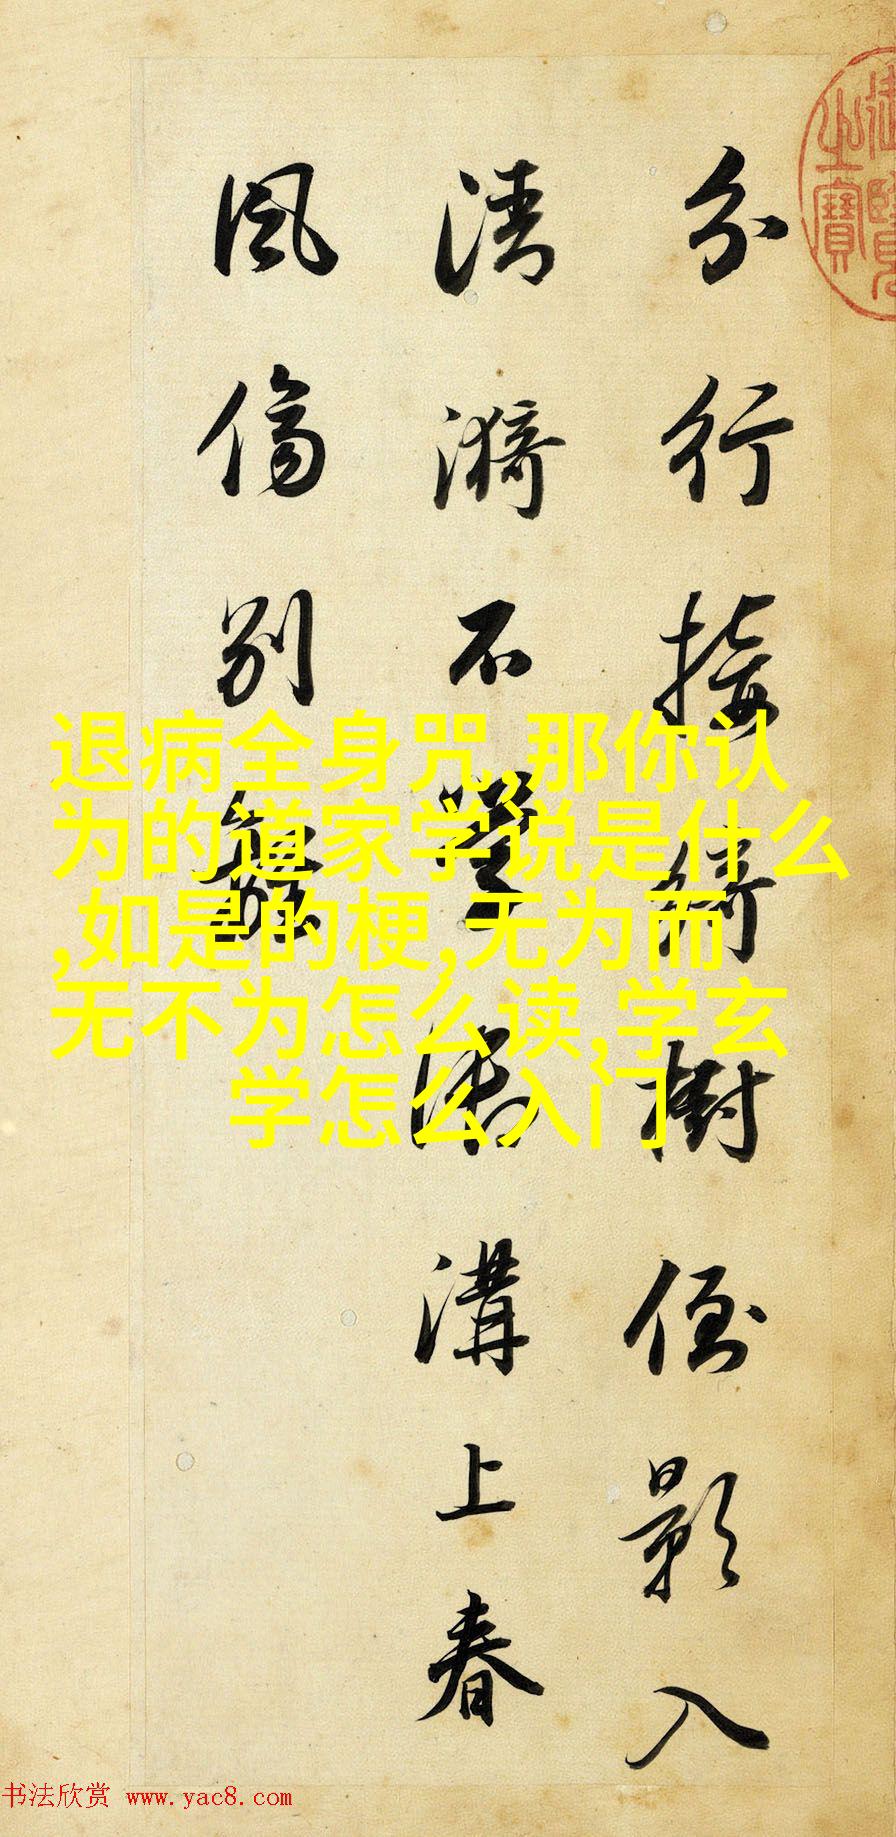 分行接绮樹倒影入
清漪不學御溝上春
風傷別離
退病全身咒,那你认
为的道家学说是什么
,如是的梗,无为而
无不为怎么读,学玄
学怎么入门
书法欣赏 www.yac8.com